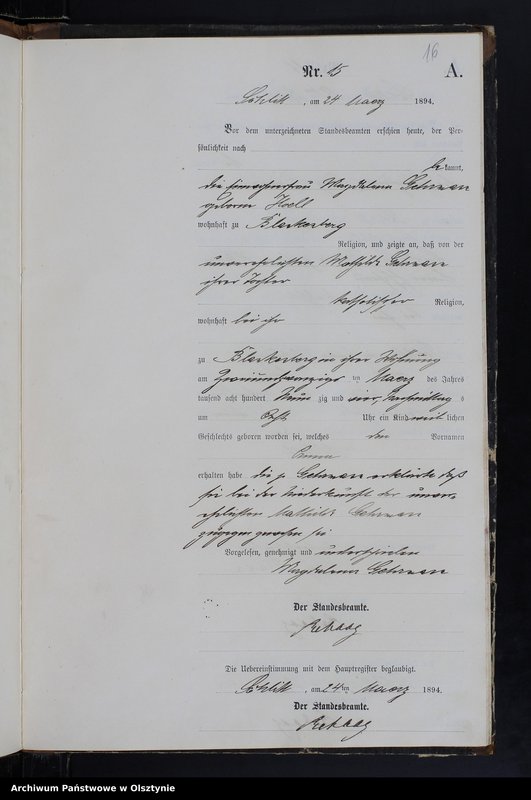 16
Nr. 15 A.
am 24 Maerz 1894.
Vor dem unterzeichneten Standesbeamten erschien heute, der Per-
sönlichkeit nach
be kannt,
die Einwohnerfrau Magdalena Gehrmann
geborne
wohnhaft zu Blankenberg
Religion, und zeigte an, daß von der
unverehelichten Mathilde Gehrmann
ihrer Tochter
katholischer Religion,
wohnhaft bei ihr
zu Blankenberg in ihrer Wohnung
am zweiundzwanzigsten Maerz des Jahres
tausend acht hundert Neun zig und vier, Nachmittag s
um acht Uhr ein Kind weib lichen
Geschlechts geboren worden sei, welches den Vornamen
Anna
erhalten habe die p. Gehrmann erklärte daß
sie bei der Niederkunft der unver-
ehelichten Mathilde Gehrmann
zugegen gewesen sei
Vorgelesen, genehmigt und unterschrieben
Magdalena Gehrmann
Der Standesbeamte.
Rehaag
Die Uebereinstimmung mit dem Hauptregister beglaubigt.
am 24 ten Maerz 1894.
Der Standesbeamte.
Rehaag
Archiwum Państwowe w Olsztynie